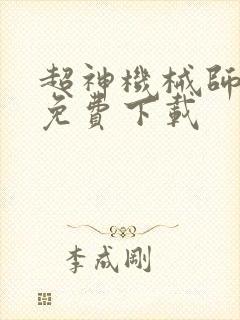 超神機械師
免費下載
李成剛